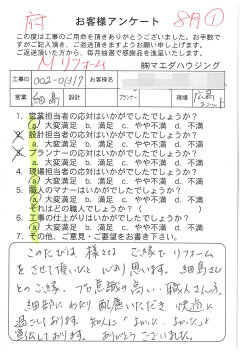 府
お客様アンケート
8月①
この度は工事のご用命を頂きありがとうございました。お手数で
すがご記入頂き、ご返送頂きますようお願い申し上げます。
ご返送頂いた方から、毎月抽選で感謝品を進呈いたします。
Mリフォーム
㈱マエダハウジング
工事ID 002-01317 お客様名
営業 細島 設計 プランナー 現場 広島
1. 営業担当者の応対はいかがでしたでしょうか?
a. 大変満足 b. 満足 c. やや不満 d. 不満
2. 設計担当者の応対はいかがでしたでしょうか?
a. 大変満足 b. 満足 c. やや不満 d. 不満
3. プランナーの応対はいかがでしたでしょうか?
a. 大変満足 b. 満足 c. やや不満 d. 不満
4. 現場担当者の応対はいかがでしたでしょうか?
a. 大変満足 b. 満足 c. やや不満 d. 不満
5. 職人のマナーはいかがでしたでしょうか?
a. 大変満足 b. 満足 c. やや不満 d. 不満
それはどの職人でしょうか?
6. 工事の仕上がりはいかがでしたでしょうか?
a. 大変満足 b. 満足 c. やや不満 d. 不満
7. その他、ご意見・ご要望をお書き下さい。
このたびは 様とは ご縁で リフォーム
をさせて頂いたと 思います。細島さん
とのご縁、プロ意識の高い、職人さん方、
細部にわたり 配慮いただき 快適に
過ごしております。知人に「よかった、よかった」と
宣伝しております。ありがとうございました。